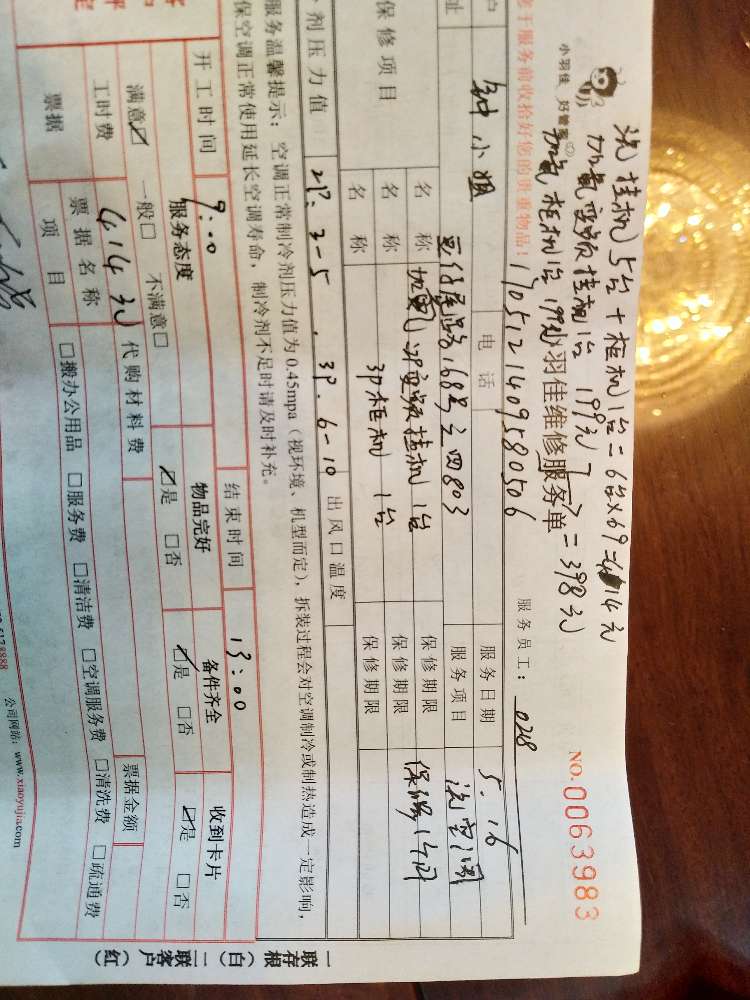 洗挂机5台+柜机1台=6台×69=414元
加氟变频挂机1台 199元
加氟柜机1台 199元 =398元
小羽佳 好管家
羽佳维修服务单
NO.0063983
于服务前收拾好您的贵重物品!
1705121409580506
服务员工: 028
户 钟小姐 电话 服务日期 5.16
址 168号之四803 服务项目 洗空调
保修项目 名称 加氟 变频挂机 1台 保修期限
名称 3P柜机 1台 保修期限
名称 保修期限
剂压力值 2P:3-5. 3P.6-10 出风口温度
服务温馨提示: 空调正常制冷剂压力值为0.45mpa(视环境、机型而定),拆装过程会对空调制冷或制热造成一定影响,
保空调正常使用延长空调寿命,制冷剂不足时请及时补充。
开工时间 9:00 结束时间 13:00
服务态度 物品完好 备件齐全 收到卡片
满意☑ 一般□ 不满意□ ☑是 □否 ☑是 □否 ☑是 □否
工时费 414元 代购材料费 票据金额
票据 票据名称
项目 □搬办公用品 □服务费 □清洁费 □空调服务费 □清洗费 □疏通费
公司网站: www.xiaoyujia.com
一联存根(白) 二联客户(红)